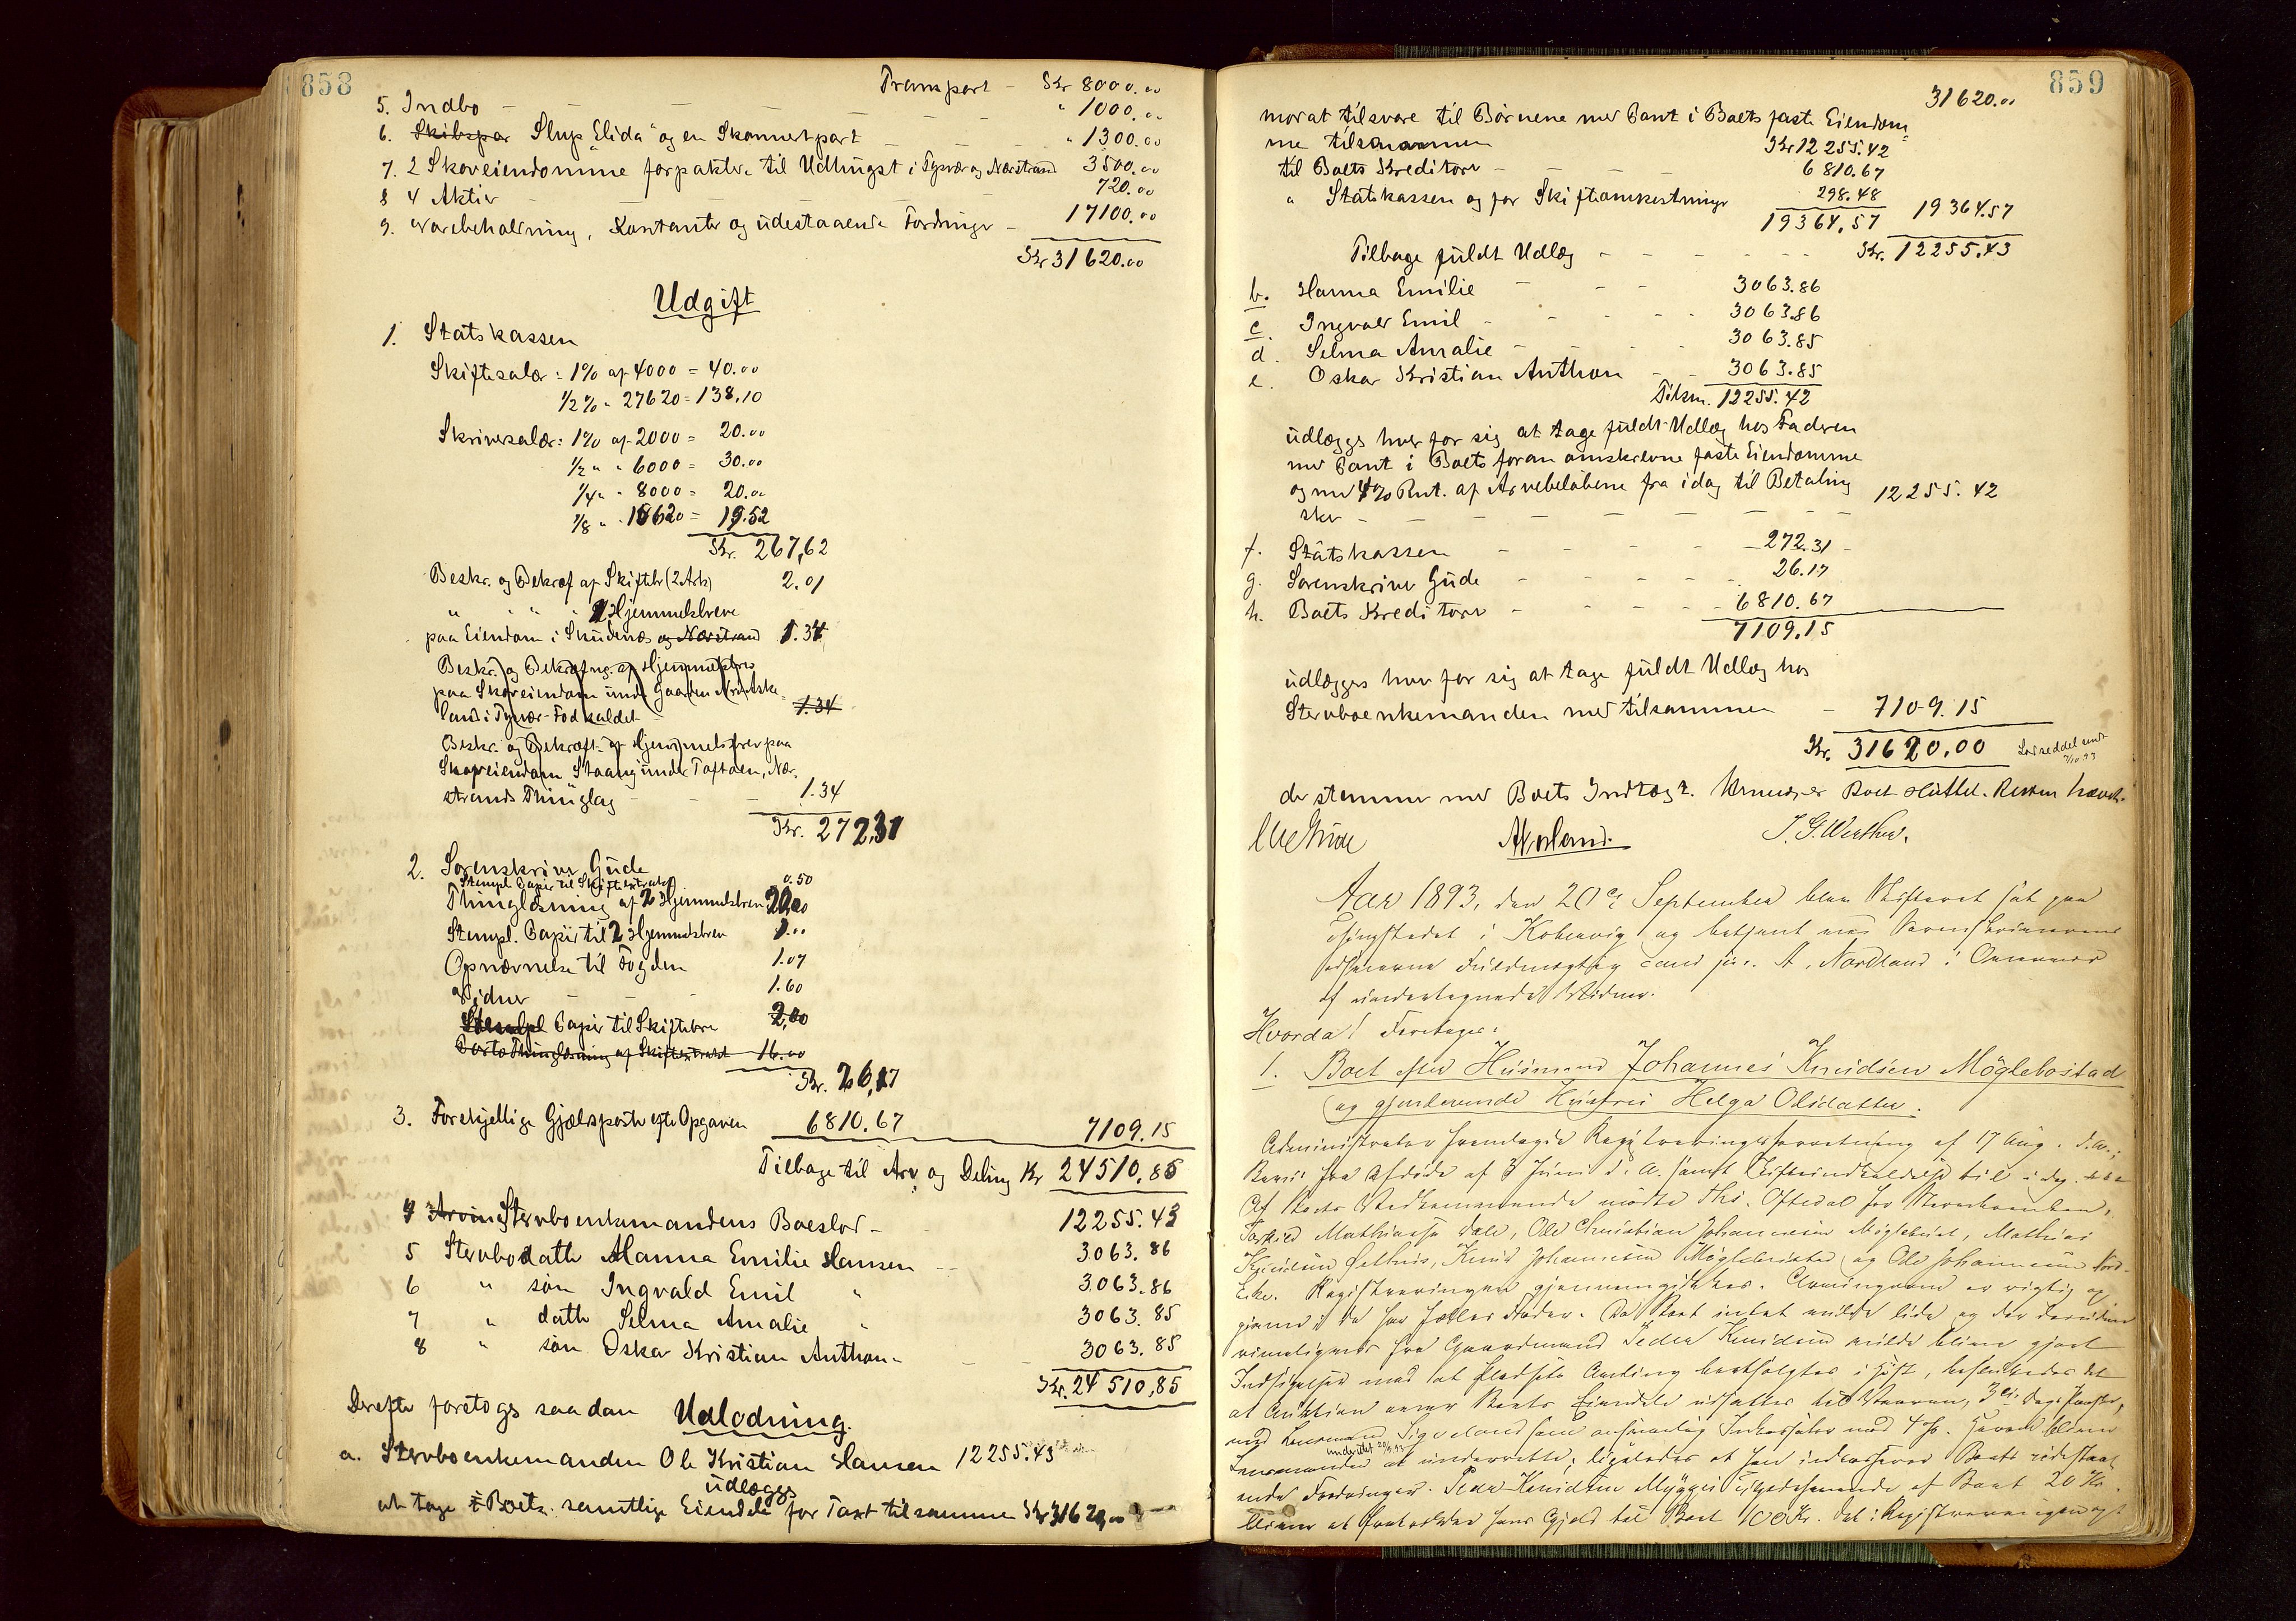 858
Transport - Kr 8000.00
5. Indbo - - - - " 1000.00
6. Skibspar Slup "Elida" og en Skonnertpart - - " 1300.00
7. 2 Skoveiendomme forpaktede til Udhugst i Tysvær og Nærstrand 3500.00
8 4 Aktier - - - 720.00
9. Varebeholdning, Kontanter og udestaaende Fordringer - 17100.00
Kr 31620.00
Udgift
1. Statskassen
Skiftesalær: 1% af 4000 = 40.00
1/2 % " 27620 = 138,10
Skriversalær: 1% af 2000 = 20.00
1/2 " " 6000 = 30.00
1/4 " " 8000 = 20.00
1/8 " " 15620 = 19.52
Kr. 267,62
Beskr. og Bekræf af Skiftebr (2 Ark) 2.01
" " " " 1 Hjemmelsbreve
paa Eiendom i Skudenes og Nærstrand 1.34
Beskr. og Bekræftng. af Hjemmelsbrev
paa Skoveiendom under Gaarden Nordre Aske-
land i Tysvær - Fodkaldet - 1.34
Beskr. og Bekræft. af Hjemmelsbrev paa
Skoveiendom Staang under Toftøen, Nær-
strands Thinglag - - - 1.34
Kr. 272,31
2. Sorenskriver Gude
Stempl. Papir til Skifteextrakt 0.50
Thinglæsning af 2 Hjemmelsbreve 20,00
Stempl. Papir til 2 Hjemmelsbrev 3.00
Opnævnelse til Fogden 1.07
Vidner - - 1.60
Stempl Papir til Skiftebrev 2,00
Porto Thinglæsning af Skifteextrakt 16.00
Kr. 26,17
3. Forskjellige Gjældsposter efter Opgaven 6810.67 7109.15
Tilbage til Arv og Deling Kr 24510,85
4 Arving Stervboenkemandens Boeslod - 12255.43
5 Stervbodatter Hanna Emilie Hansen - 3063.86
6 " søn Ingvald Emil " 3063.86
7 " datter Selma Amalie " 3063.85
8 " søn Oskar Kristian Anthon " - - 3063.85
Kr. 24510,85
Derefter foretoges saadan Udlodning.
a. Stervboenkemanden Ole Kristian Hansen 12255.43
udlægges
at tage i Boets samtlige Eiendele for Taxt tilsammen Kr 31620,00
859
31620.00
morat tilsvare til Børnene med Pant i Boets faste Eiendom-
me tilsammen Kr 12255.42
til Boets Kreditorer - 6810.67
" Statskassen og for Skifteomkostninger 298.48
19364,57 19364.57
Tilbage fuldt Udlæg - - - - - Kr. 12255.43
b. Hanna Emilie - - - 3063.86
c. Ingvald Emil - - - - 3063.86
d. Selma Amalie - - - - 3063.85
e. Oskar Kristian Anthon - - 3063.85
Tilsm. 12255.42
udlægges hver for sig at tage fuldt Udlæg hos Faderen
med Pant i Boets foran omskrevne faste Eiendomme
og med 4% Rent. af Arvebeløbene fra idag til Betaling 12255.42
sker - - - - - - -
f. Statskassen - - - - 272.31
g. Sorenskriver Gude - - - - 26.17
h. Boets Kreditorer - - - - 6810.67
7109.15
udlægges hver for sig at tage fuldt Udlæg hos
Stervboenkemanden med tilsammen - 7109.15
Kr. 31620,00 Lodseddel
der stemmer med Boets Indtægt. Hermed er Boet sluttet. Retten hævet.
Nordland. J. G. Werther.
Aar 1893, den 20de September blev Skifteret sat paa
Thingstedet i Kobbervig og betjent med Sorenskriverens
edsvorne Fuldmægtig cand jur. A. Nordland i Overvær
af undertegnede Vidner.
Hvorda! Foretages:
1. Boet efter Husmand Johannes Knudsen Möglebostad
og gjenlevende Hustru Helga Olsdatter.
Administrator fremlagde Registreringsforretning af 17 Aug. d. A.,
Bevis fra Afdøde af 3 Juni d. A. samt Skifteindkaldelse til i dag.
Af Boets Vedkommende mødte Ths. Oftedal for Stervboenken,
Torkild Mathiassen Dale, Ole Christian Johannessen Möglebust, Mathias
Knudsen, Knud Johannessen Möglebostad og Ole Johannessen
Registreringen gjennemgikkes. Arvingerne er rigtig
Peder Knudsen vilde blive gjort
i Høst,
at Auktion over Boets Eiendele udsættes til Vaaren,
med Lensmand som Inkassator mod 4%.
Lensmanden at underrette; ligeledes at han indkasserer Boets udestaa-
ende Fordringer. Peder Knudsen af Boet 20 Kr.
hans Gjæld til Boet 100 Kr.